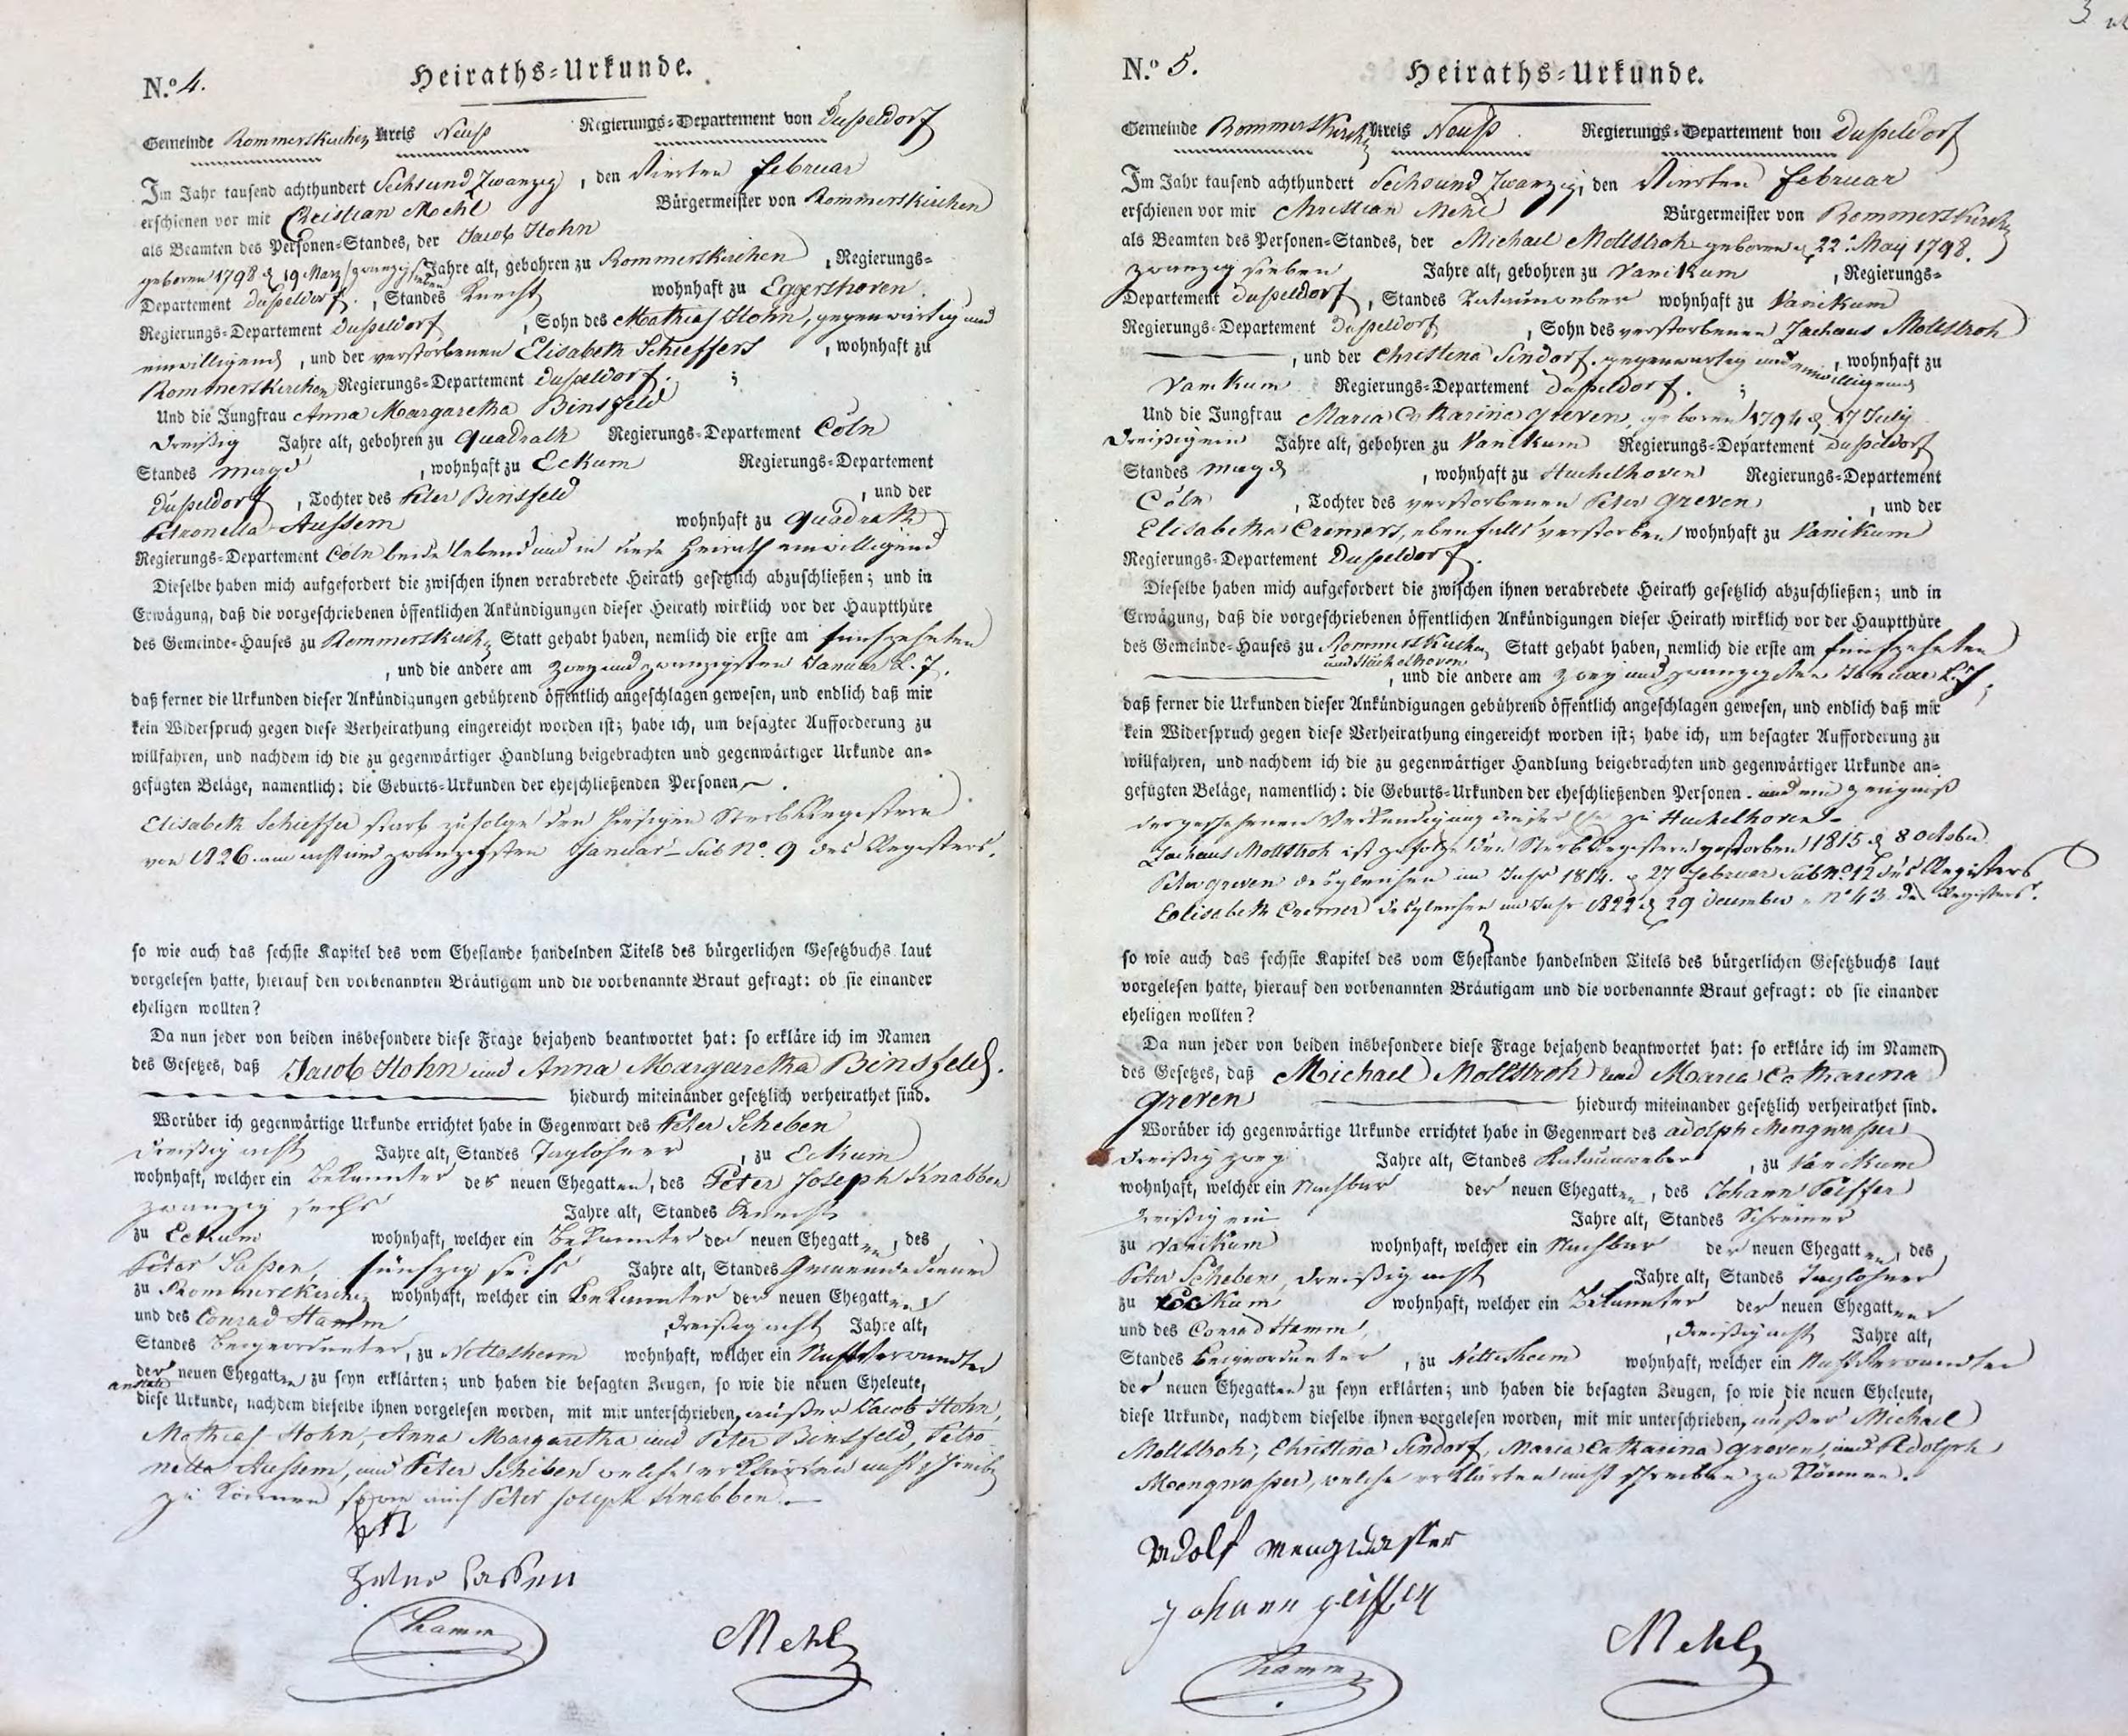 N.o 4.
Heiraths-Urkunde.
Gemeinde Rommerskirchen Kreis Neuß Regierungs-Departement von Dußeldorf
Im Jahr tausend achthundert Sechsund Zwanzig, den Vierten Februar
erschienen vor mir Christian Mehl Bürgermeister von Rommerskirchen
als Beamten des Personen-Standes, der Jacob Hohn
geboren 1798 d 19 Marz / zwanzig sieben Jahre alt, gebohren zu Rommerskirchen, Regierungs-
Departement Dußeldorf., Standes Knecht wohnhaft zu Eggershoven
Regierungs-Departement Dußeldorf, Sohn des Mathias Hohn, gegenwärtig und
einwilligend, und der verstorbenen Elisabeth Schieffers, wohnhaft zu
Rommerskirchen Regierungs-Departement Dußeldorf. ;
Und die Jungfrau Anna Margaretha Binsfeld
Dreißig Jahre alt, gebohren zu Quadrath Regierungs-Departement Cöln
Standes Magd, wohnhaft zu Eckum Regierungs-Departement
Dußeldorf, Tochter des Peter Binsfeld, und der
Petronella Aussem wohnhaft zu Quadrath
Regierungs-Departement Cöln beide lebend und in diese Heirath einwilligend
Dieselbe haben mich aufgefordert die zwischen ihnen verabredete Heirath gesetzlich abzuschließen; und in
Erwägung, daß die vorgeschriebenen öffentlichen Ankündigungen dieser Heirath wirklich vor der Hauptthüre
des Gemeinde-Hauses zu Rommerskirchen Statt gehabt haben, nemlich die erste am funfzehnten
, und die andere am zwey und zwanzigsten Januar l. J.
daß ferner die Urkunden dieser Ankündigungen gebührend öffentlich angeschlagen gewesen, und endlich daß mir
kein Widerspruch gegen diese Verheirathung eingereicht worden ist; habe ich, um besagter Aufforderung zu
willfahren, und nachdem ich die zu gegenwärtiger Handlung beigebrachten und gegenwärtiger Urkunde an-
gefügten Beläge, namentlich: die Geburts-Urkunden der eheschließenden Personen.
Elisabeth Schieffer starb zufolge den hiesigen Sterb Registern
von 1826. am acht und zwanzigsten Januar sub No. 9 des Registers.
so wie auch das sechste Kapitel des vom Ehestande handelnden Titels des bürgerlichen Gesetzbuchs laut
vorgelesen hatte, hierauf den vorbenannten Bräutigam und die vorbenannte Braut gefragt: ob sie einander
eheligen wollten?
Da nun jeder von beiden insbesondere diese Frage bejahend beantwortet hat: so erkläre ich im Namen
des Gesetzes, daß Jacob Hohn und Anna Margaretha Binsfeld.
hiedurch miteinander gesetzlich verheirathet sind.
Worüber ich gegenwärtige Urkunde errichtet habe in Gegenwart des Peter Scheben
dreißig acht Jahre alt, Standes Taglohner, zu Eckum
wohnhaft, welcher ein Bekannter der neuen Ehegatten, des Peter Joseph Knabben
zwanzig sechs Jahre alt, Standes Knecht
zu Eckum wohnhaft, welcher ein Bekannter der neuen Ehegatten, des
Peter Saßen, fünfzig sechs Jahre alt, Standes Gemeindediener
zu Rommerskirchen wohnhaft, welcher ein Bekannter der neuen Ehegatten
und des Conrad Hamm, dreißig acht Jahre alt,
Standes Beigeordneter, zu Nettesheim wohnhaft, welcher ein Nichtverwandter
der neuen Ehegatten zu seyn erklärten; und haben die besagten Zeugen, so wie die neuen Eheleute,
diese Urkunde, nachdem dieselbe ihnen vorgelesen worden, mit mir unterschrieben, außer Jacob Hohn,
Mathias Hohn, Anna Margaretha und Peter Binsfeld, Petro
nella Aussem, und Peter Scheben welche erklärten nicht schreiben
zu können sowie auch Peter Joseph Knabben.
Peter Sassen
Hamm
Mehl
N.o 5.
Heiraths-Urkunde.
Gemeinde Rommerskirchen Kreis Neuß. Regierungs-Departement von Dußeldorf
Im Jahr tausend achthundert Sechsund Zwanzig, den Vierten Februar
erschienen vor mir Christian Mehl Bürgermeister von Rommerskirchen
als Beamten des Personen-Standes, der Michael Mollstroh geboren d 22. May 1798.
zwanzig sieben Jahre alt, gebohren zu Vanikum, Regierungs-
Departement Dußeldorf, Standes Kataunweber wohnhaft zu Vanikum
Regierungs-Departement Dußeldorf, Sohn des verstorbenen Zachaus Mollstroh
, und der Christina Sindorf. gegenwartig und einwilligend, wohnhaft zu
Vanikum Regierungs-Departement Dußeldorf. ;
Und die Jungfrau Maria Catharina Greven, geboren 1794 d 17 July
Dreißigein Jahre alt, gebohren zu Vanikum Regierungs-Departement Dußeldorf
Standes Magd, wohnhaft zu Huchelhoven Regierungs-Departement
Cöln, Tochter des verstorbenen Peter Greven, und der
Elisabetha Cremers, ebenfalls verstorben wohnhaft zu Vanikum
Regierungs-Departement Dußeldorf.
Dieselbe haben mich aufgefordert die zwischen ihnen verabredete Heirath gesetzlich abzuschließen; und in
Erwägung, daß die vorgeschriebenen öffentlichen Ankündigungen dieser Heirath wirklich vor der Hauptthüre
des Gemeinde-Hauses zu Rommerskirchen Statt gehabt haben, nemlich die erste am funfzehnten
und Huchelhoven
, und die andere am zwey und zwanzigsten Januar l. J.
daß ferner die Urkunden dieser Ankündigungen gebührend öffentlich angeschlagen gewesen, und endlich daß mir
kein Widerspruch gegen diese Verheirathung eingereicht worden ist; habe ich, um besagter Aufforderung zu
willfahren, und nachdem ich die zu gegenwärtiger Handlung beigebrachten und gegenwärtiger Urkunde an-
gefügten Beläge, namentlich: die Geburts-Urkunden der eheschließenden Personen. und ein Zeugniß
der geschehenen Verkundigung dieser Ehe zu Huckelhoven.
Zachaus Mollstroh ist zufolge den Sterb Registern gestorben 1815 d 8 October
Peter Greven desgleichen im Jahr 1814. d 27 Februar sub No. 12 des Registers
Elisabeth Cremer desgleichen im Jahr 1822 d 29 December No 43 des Registers.
so wie auch das sechste Kapitel des vom Ehestande handelnden Titels des bürgerlichen Gesetzbuchs laut
vorgelesen hatte, hierauf den vorbenannten Bräutigam und die vorbenannte Braut gefragt: ob sie einander
eheligen wollten?
Da nun jeder von beiden insbesondere diese Frage bejahend beantwortet hat: so erkläre ich im Namen
des Gesetzes, daß Michael Mollstroh und Maria Catharina
Greven hiedurch miteinander gesetzlich verheirathet sind.
Worüber ich gegenwärtige Urkunde errichtet habe in Gegenwart des Adolph Mengwaßer
Dreißig zwey Jahre alt, Standes Kataunweber, zu Vanikum
wohnhaft, welcher ein Nachbar der neuen Ehegatten, des Johann Peiffer
dreißig ein Jahre alt, Standes Schreiner
zu Vanikum wohnhaft, welcher ein Nachbar der neuen Ehegatten, des
Peter Scheben, dreißig acht Jahre alt, Standes Taglohner
zu Eckum wohnhaft, welcher ein Bekannter der neuen Ehegatten
und des Conrad Hamm, dreißig acht Jahre alt,
Standes Beigeordneter, zu Nettesheim wohnhaft, welcher ein Nichtverwandter
der neuen Ehegatten zu seyn erklärten; und haben die besagten Zeugen, so wie die neuen Eheleute,
diese Urkunde, nachdem dieselbe ihnen vorgelesen worden, mit mir unterschrieben, außer Michael
Mollstroh, Christina Sindorf, Maria Catharina Greven, und Adolph
Mengwaßer, welche erklärten nicht schreiben zu können.
Adolf Mengwasser
Johann Peiffer
Hamm
Mehl